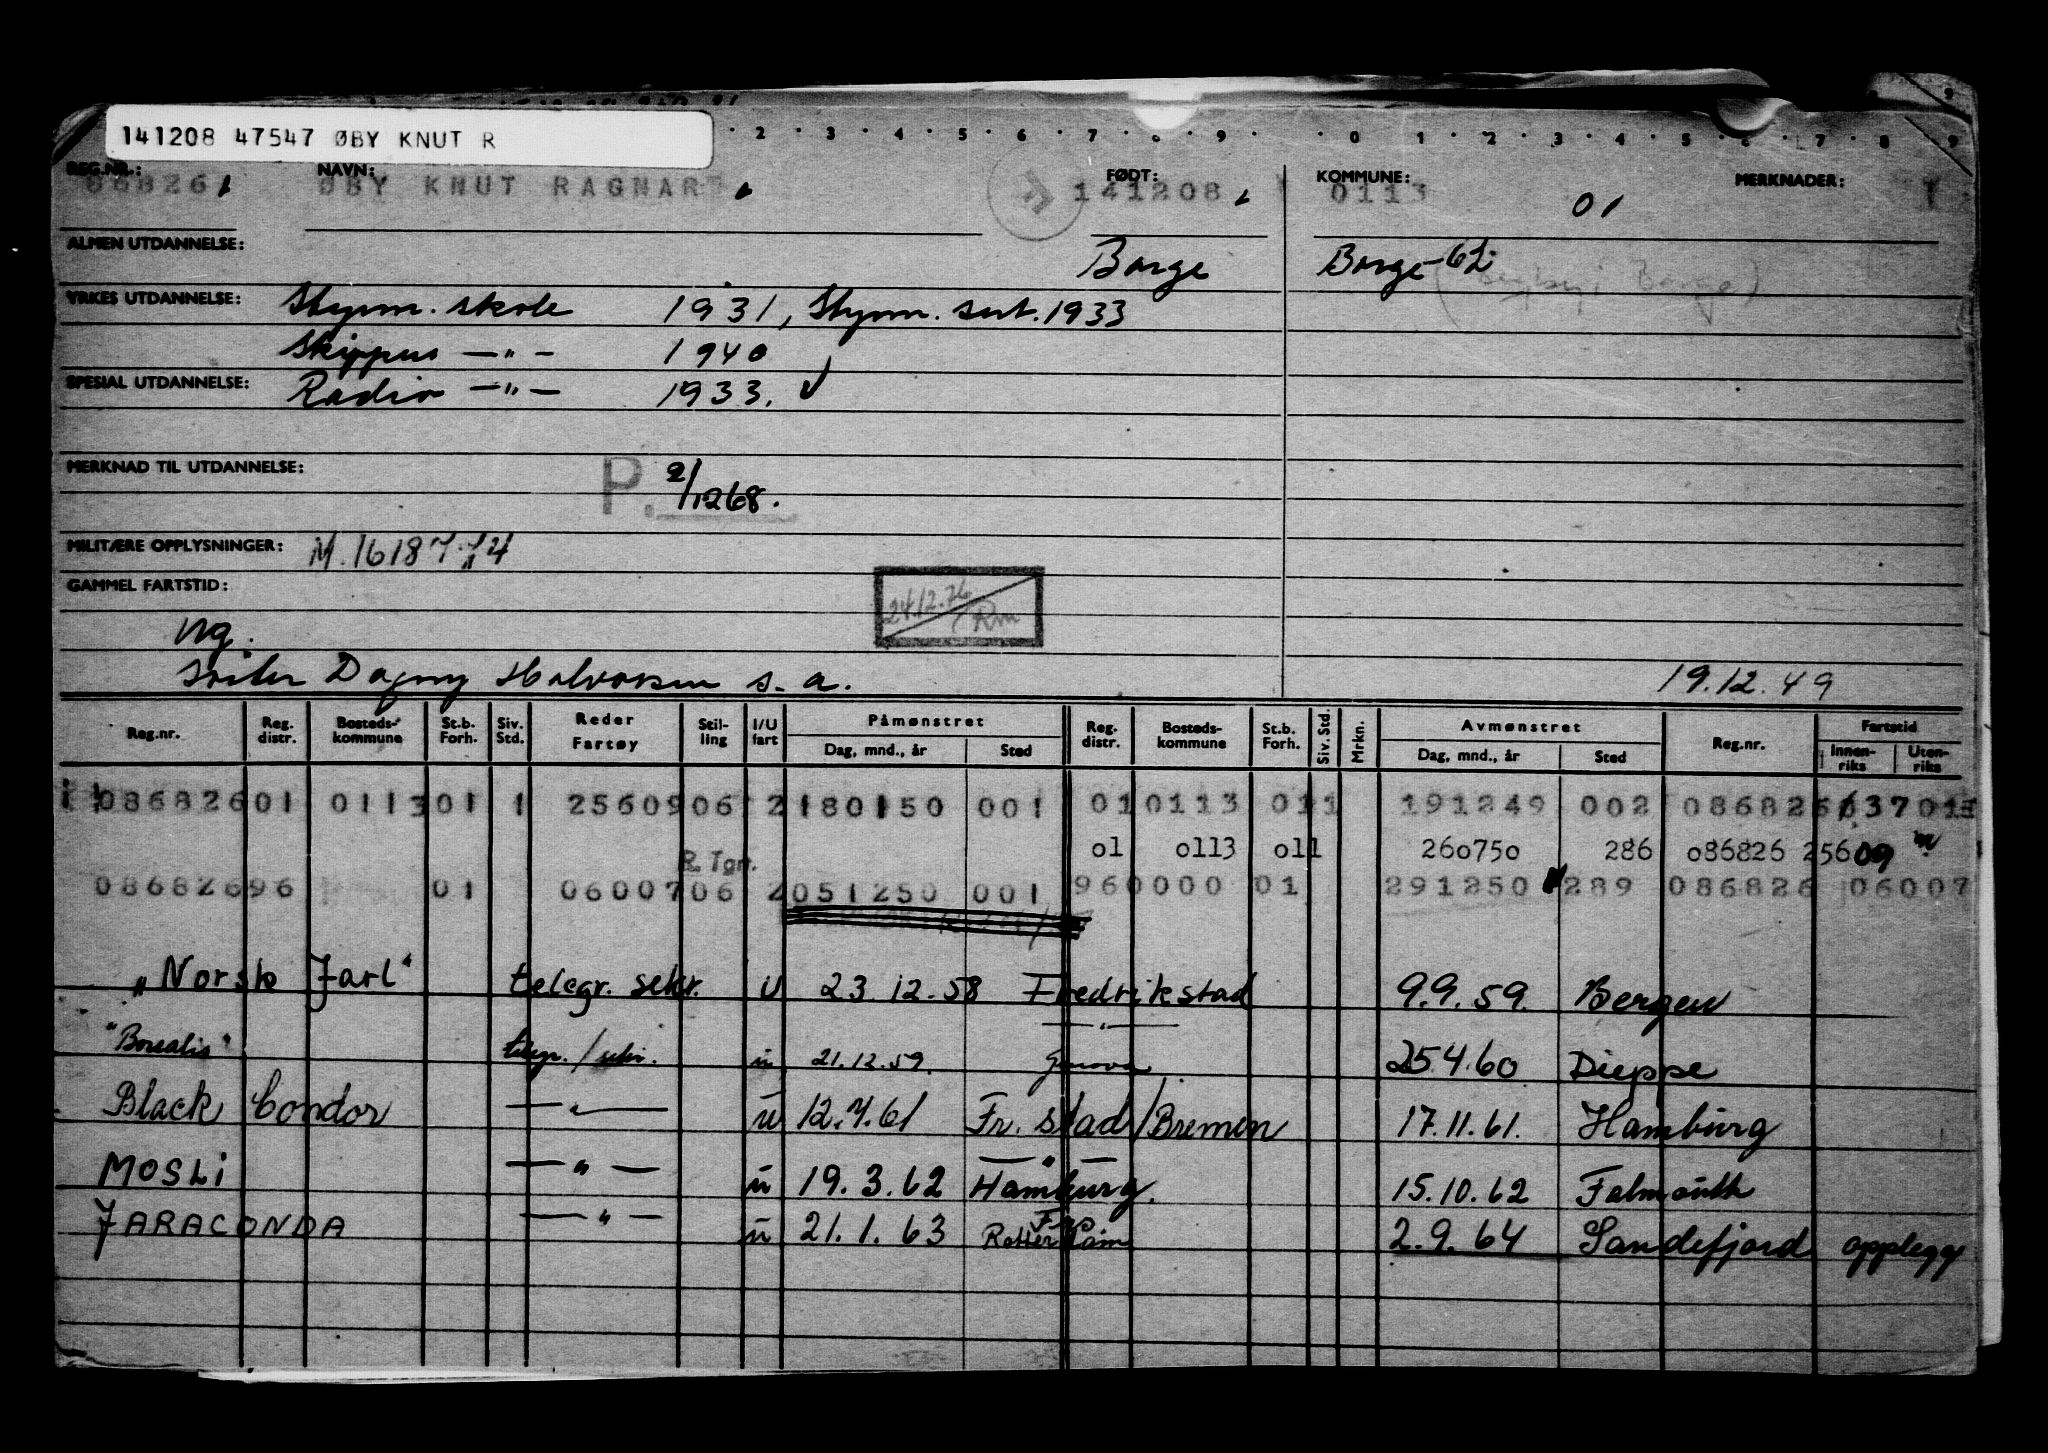 141208 47547 ØBY KNUT R
2 3 4 5 6 7 8 9 0 1 2 3 4 5 6 7 8 9
REG.NR.: NAVN: FØDT: KOMMUNE: MERKNADER:
86826 ØBY KNUT RAGNAR 141208 0113 01
ALMEN UTDANNELSE: Borge Borge -62
YRKES UTDANNELSE: Styrm. skole 1931, Styrm. sert. 1933
Skipper —"— 1940
SPESIAL UTDANNELSE: Radio —"— 1933.
MERKNAD TIL UTDANNELSE: P. 2/1268.
MILITÆRE OPPLYSNINGER: M.16187
GAMMEL FARTSTID:
24.12.76 / Rm
Ng.
Dagny Halvorsen s. a. 19.12.49
Reg.nr. Reg. distr. Bosteds-kommune St.b. Forh. Siv. Std. Reder Fartøy Stil-ling I/U fart Påmønstret Dag, mnd., år Sted Reg. distr. Bosteds-kommune St.b. Forh. Siv. Std. Mrkn. Avmønstret Dag, mnd., år Sted Reg.nr. Fartstid Innen-riks Uten-riks
086826 01 0113 01 1 25609 06 2 180150 001 01 0113 01 1 191249 002 086826
01 0113 011 260750 286 086826 25609
R. Tgr.
086826 96 01 06007 06 2 051250 001 96 0000 01 291250 289 086826 06007
"Norsk Jarl" telegr. sekr. U 23.12.58 Fredrikstad 9.9.59. Bergen
—"—
"Borealis" telegr./sekr. u 21.12.59. Genova 25.4.60 Dieppe
Black Condor —"— u 12.7.61 Fr.stad/Bremen 17.11.61. Hamburg
MOSLI —"— u 19.3.62 —"— Hamburg. 15.10.62 Falmouth
JARACONDA —"— u 21.1.63 Rotterdam 2.9.64 Sandefjord opplegg